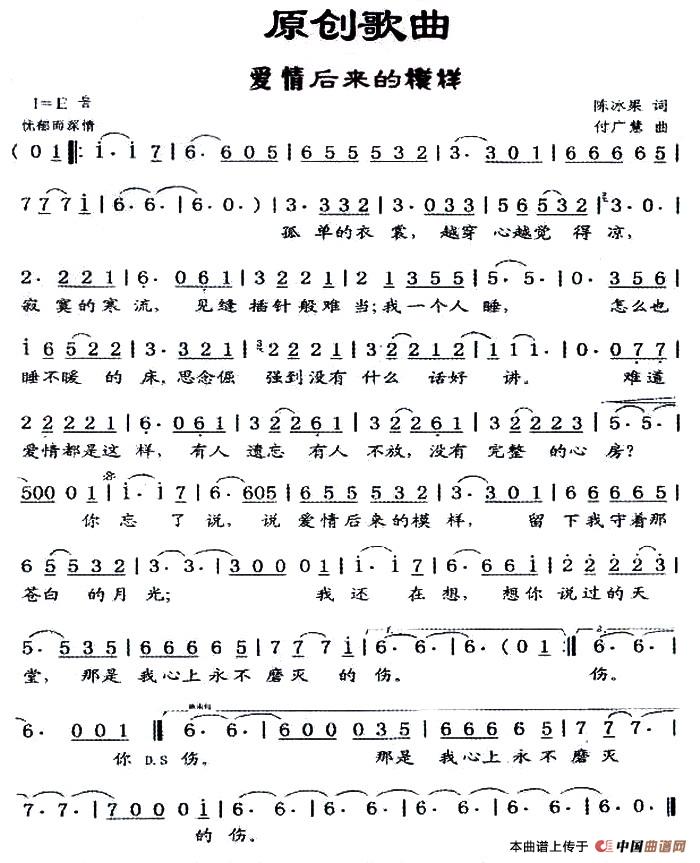 原创歌曲
爱情后来的模样
1=E
陈冰果 词
忧郁而深情
付广慧 曲
( 0 1 |: i· i 7 | 6· 6 0 5 | 6 5 5 5 3 2 | 3· 3 0 1 | 6 6 6 6 5 |
7 7 7 i | 6· 6· | 6· 6· | 6· 0· ) | 3· 3 3 2 | 3· 0 3 3 | 5 6 5 3 2 | 3· 0· |
孤 单的衣 裳, 越穿 心越觉 得 凉,
2· 2 2 1 | 6· 0 6 1 | 3 2 2 1 | 2 1 3 5 5 | 5· 5· | 5· 0· | 0· 3 5 6 |
寂 寞的寒 流, 见缝 插针般难 当;我一个人 睡, 怎么也
i 6 5 2 2 | 3· 3 2 1 | 2 2 2 1 | 3 2 2 1 2 | 1· 1· | 0· 0 7 7 |
睡不暖 的 床,思念倔 强到没有 什么 话好 讲。 难道
2 2 2 2 1 | 6· 0 6 1 | 3 2 2 6 1 | 3 2 2 6 1 | 3 2 2 2 3 | 5· 5· |
爱情都是这 样, 有人 遗忘 有人 不放,没有 完整 的心 房?
5 0 0 0 0 1 | i· i 7 | 6· 6 0 5 | 6 5 5 5 3 2 | 3· 3 0 1 | 6 6 6 6 5 |
你 忘 了说, 说 爱情后来的模 样, 留 下我守着那
6 5 5 3 2 | 3· 3· | 3 0 0 0 1 | i· i 7 | 6· 6 6 i | 2 2 2 2 3 |
苍白 的月 光; 我 还 在 想, 想你 说过的天
5· 5 3 5 | 6 6 6 6 5 | 7 7 7 i | 6· 6· | 6· ( 0 1 :| 6· 6· | 6· 6· |
堂, 那是 我心上永不 磨灭 的 伤。 伤。
6· 0 0 1 || 6· 6· | 6 0 0 0 3 5 | 6 6 6 6 5 | 7 7 7· |
你 D.S 伤。 那是 我 心上永不 磨 灭
7· 7· | 7 0 0 0 i | 6· 6· | 6· 6· | 6· 6· | 6· 6· ||
的 伤。
本曲谱上传于 中国曲谱网